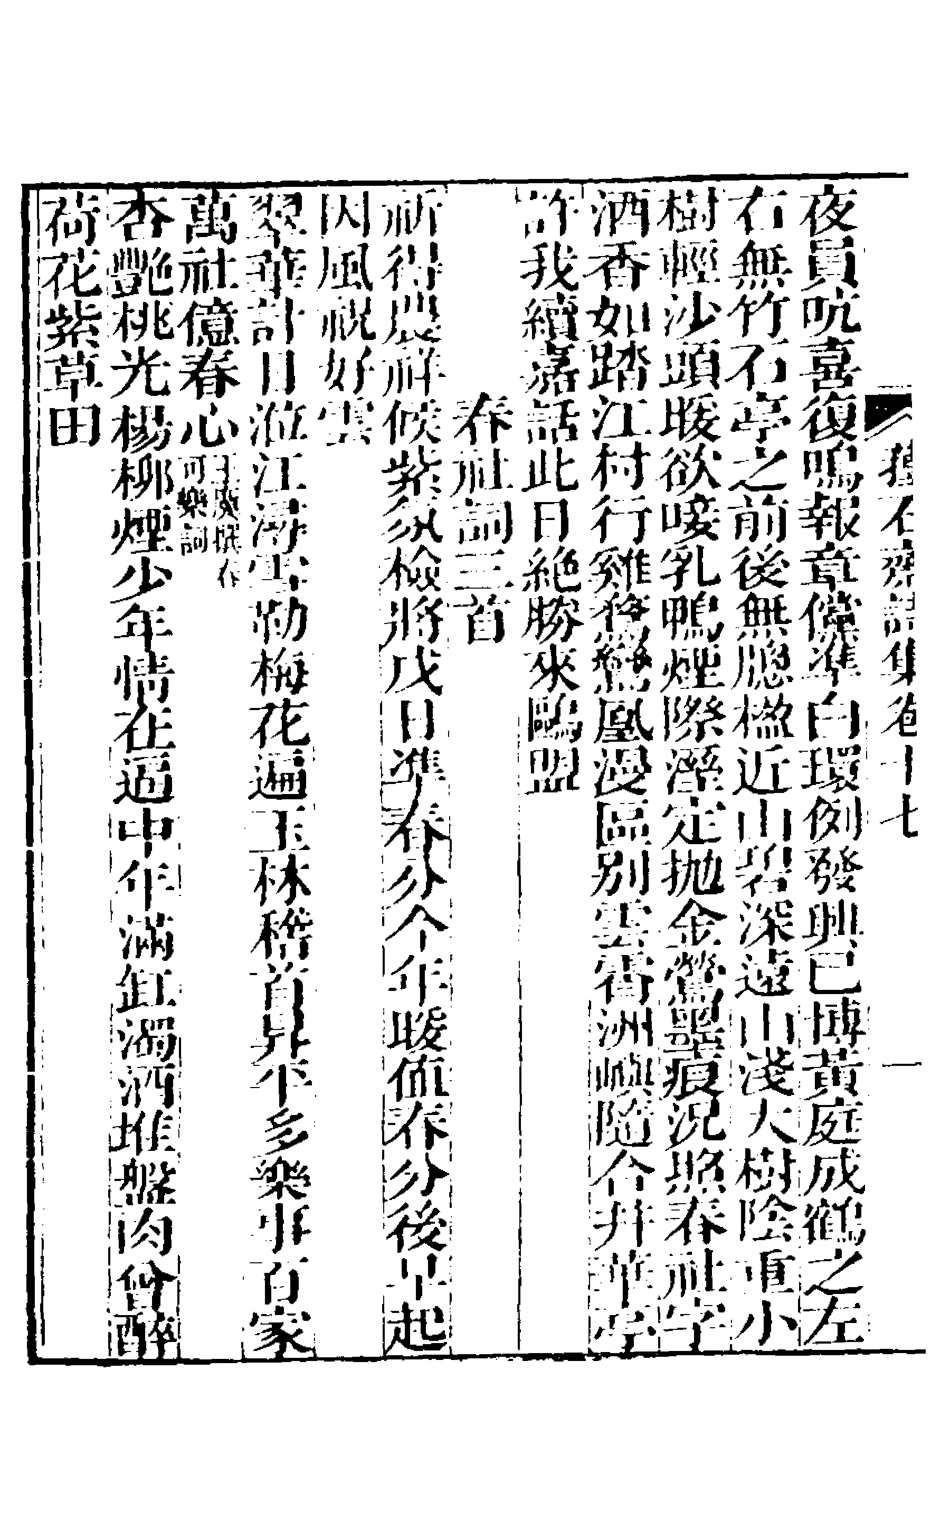 蘀石齋詩集卷十七
一
夜員吭喜復鳴報章儻準白環例發興已博黃庭成鶴之左
右無竹石亭之前後無牕楹近山碧深遠山淺大樹陰重小
樹輕沙頭暖欲唼乳鴨煙際溼定拋金鶯墨痕況照春社字
酒香如踏江村行雞鶩鸞凰漫區別雲霄洲嶼隨合并華亭
許我續嘉話此日絕勝來鷗盟
春社詞三首
祈得農祥候紫氛檢將戊日準春分今年暖值春分後早起
因風祝好雲
翠華計日涖江潯雪勒梅花遍玉林稽首昇平多樂事百家
萬社億春心王廣撰春可樂詞
杏豔桃光楊柳煙少年情在逼中年滿缸濁酒堆盤肉曾醉
荷花紫草田